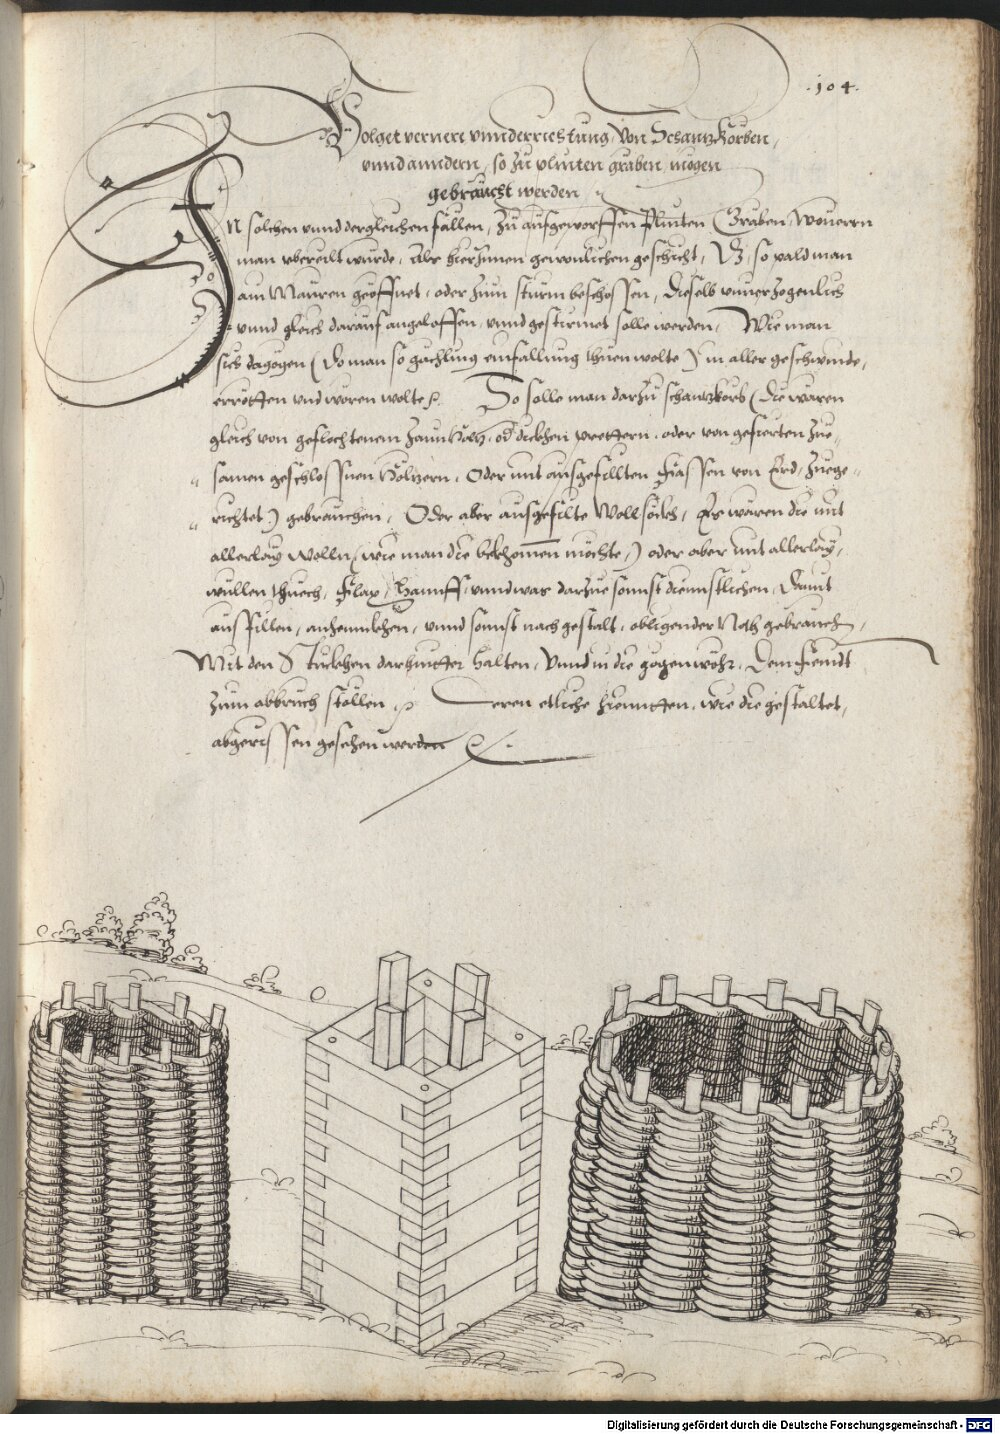 .104.
Volget vernere vnnderrichtung, von Schantzkörben,
vnnd anndern, so zu plinten graben mögen
gebraucht werden
In solchen vnnd dergleichen fällen, zu aufgeworffen Plinten Gräben, wouerrn
man vbereilt wurde, Als hierInnen gewonlichen geschicht, So pald man
ain Mauren geöffnet, oder zum sturm beschossen, dieselb vnuerzogenlich
vnnd gleich darauf angeloffen, vnnd gesturmet solle werden, Wie man
sich dagögen (Do man so gächling einfallung thuen wolte) in aller geschwinde,
erretten vnd wören wolte. So solle man darzu schantzkörb (die wären
gleich von geflochtenem Zaun holtz, od dickhen prettern, oder von gefierten Zue,
samen geschlossnen höltzern, Oder mit ausgefillten Fassen von Erd, Zuege,
richtet) gebrauchen, Oder aber ausgefilte Wollsökh, Es wären die mit
allerlay wolln (wie man die bekhomen möchte,) oder aber mit allerlay,
wüllen thuech, Flax, Hannff, vnnd was darzue sonnst diennstlichen, damit
ausfillen, anhennckhen, vnnd sonnst nach gestalt, obligender Not gebrauchen,
Mit den Stuckhen darhintter halten, Vnnd in die gögenwöhr, dem Feindt
zum abbruch stöllen. Deren etliche hieuntten, wie die gestaltet,
abgerissen gesehen werden
Digitalisierung gefördert durch die Deutsche Forschungsgemeinschaft - DFG